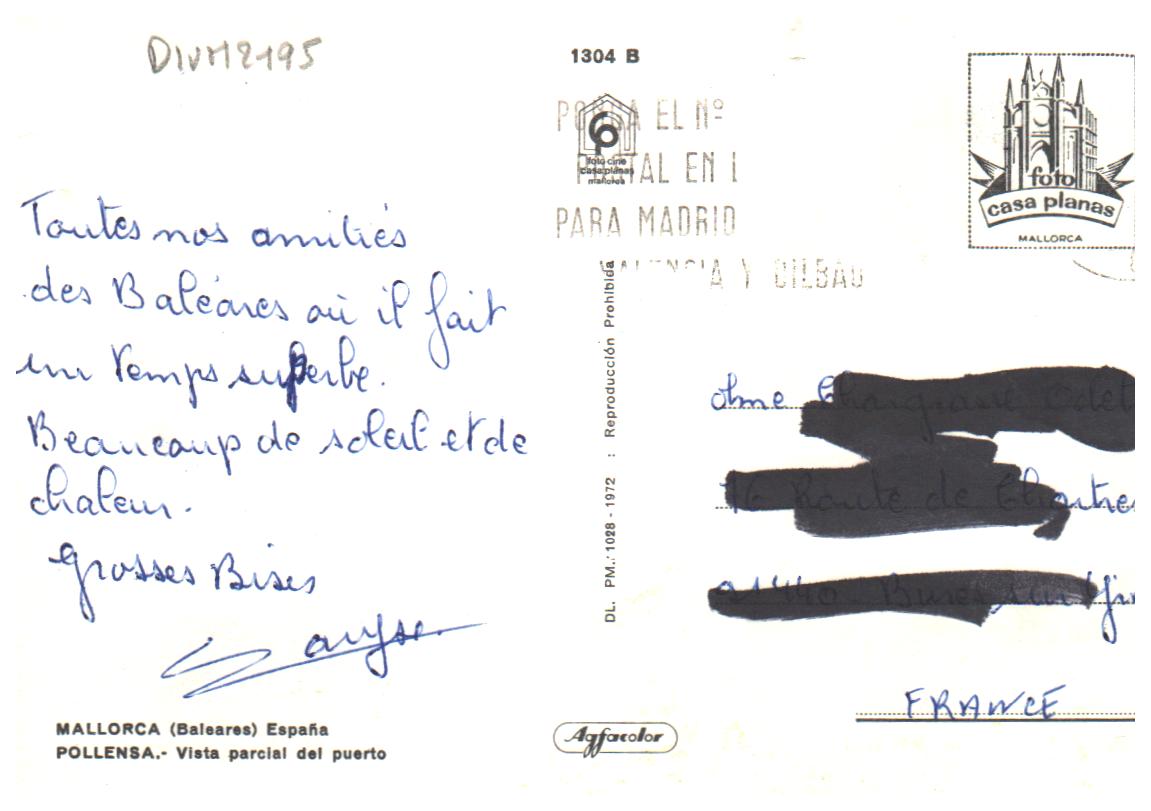 DIVM2195
Toutes nos amitiés
des Baléares où il fait
un temps superbe.
Beaucoup de soleil et de
chaleur.
Grosses Bises
MALLORCA (Baleares) España
POLLENSA.- Vista parcial del puerto
1304 B
PONGA EL Nº
POSTAL EN L
PARA MADRID
VALENCIA Y BILBAO
foto cine
casa planas
mallorca
DL. PM.: 1028 - 1972 : Reproducción Prohibida
Agfacolor
foto
casa planas
MALLORCA
Mme
FRANCE